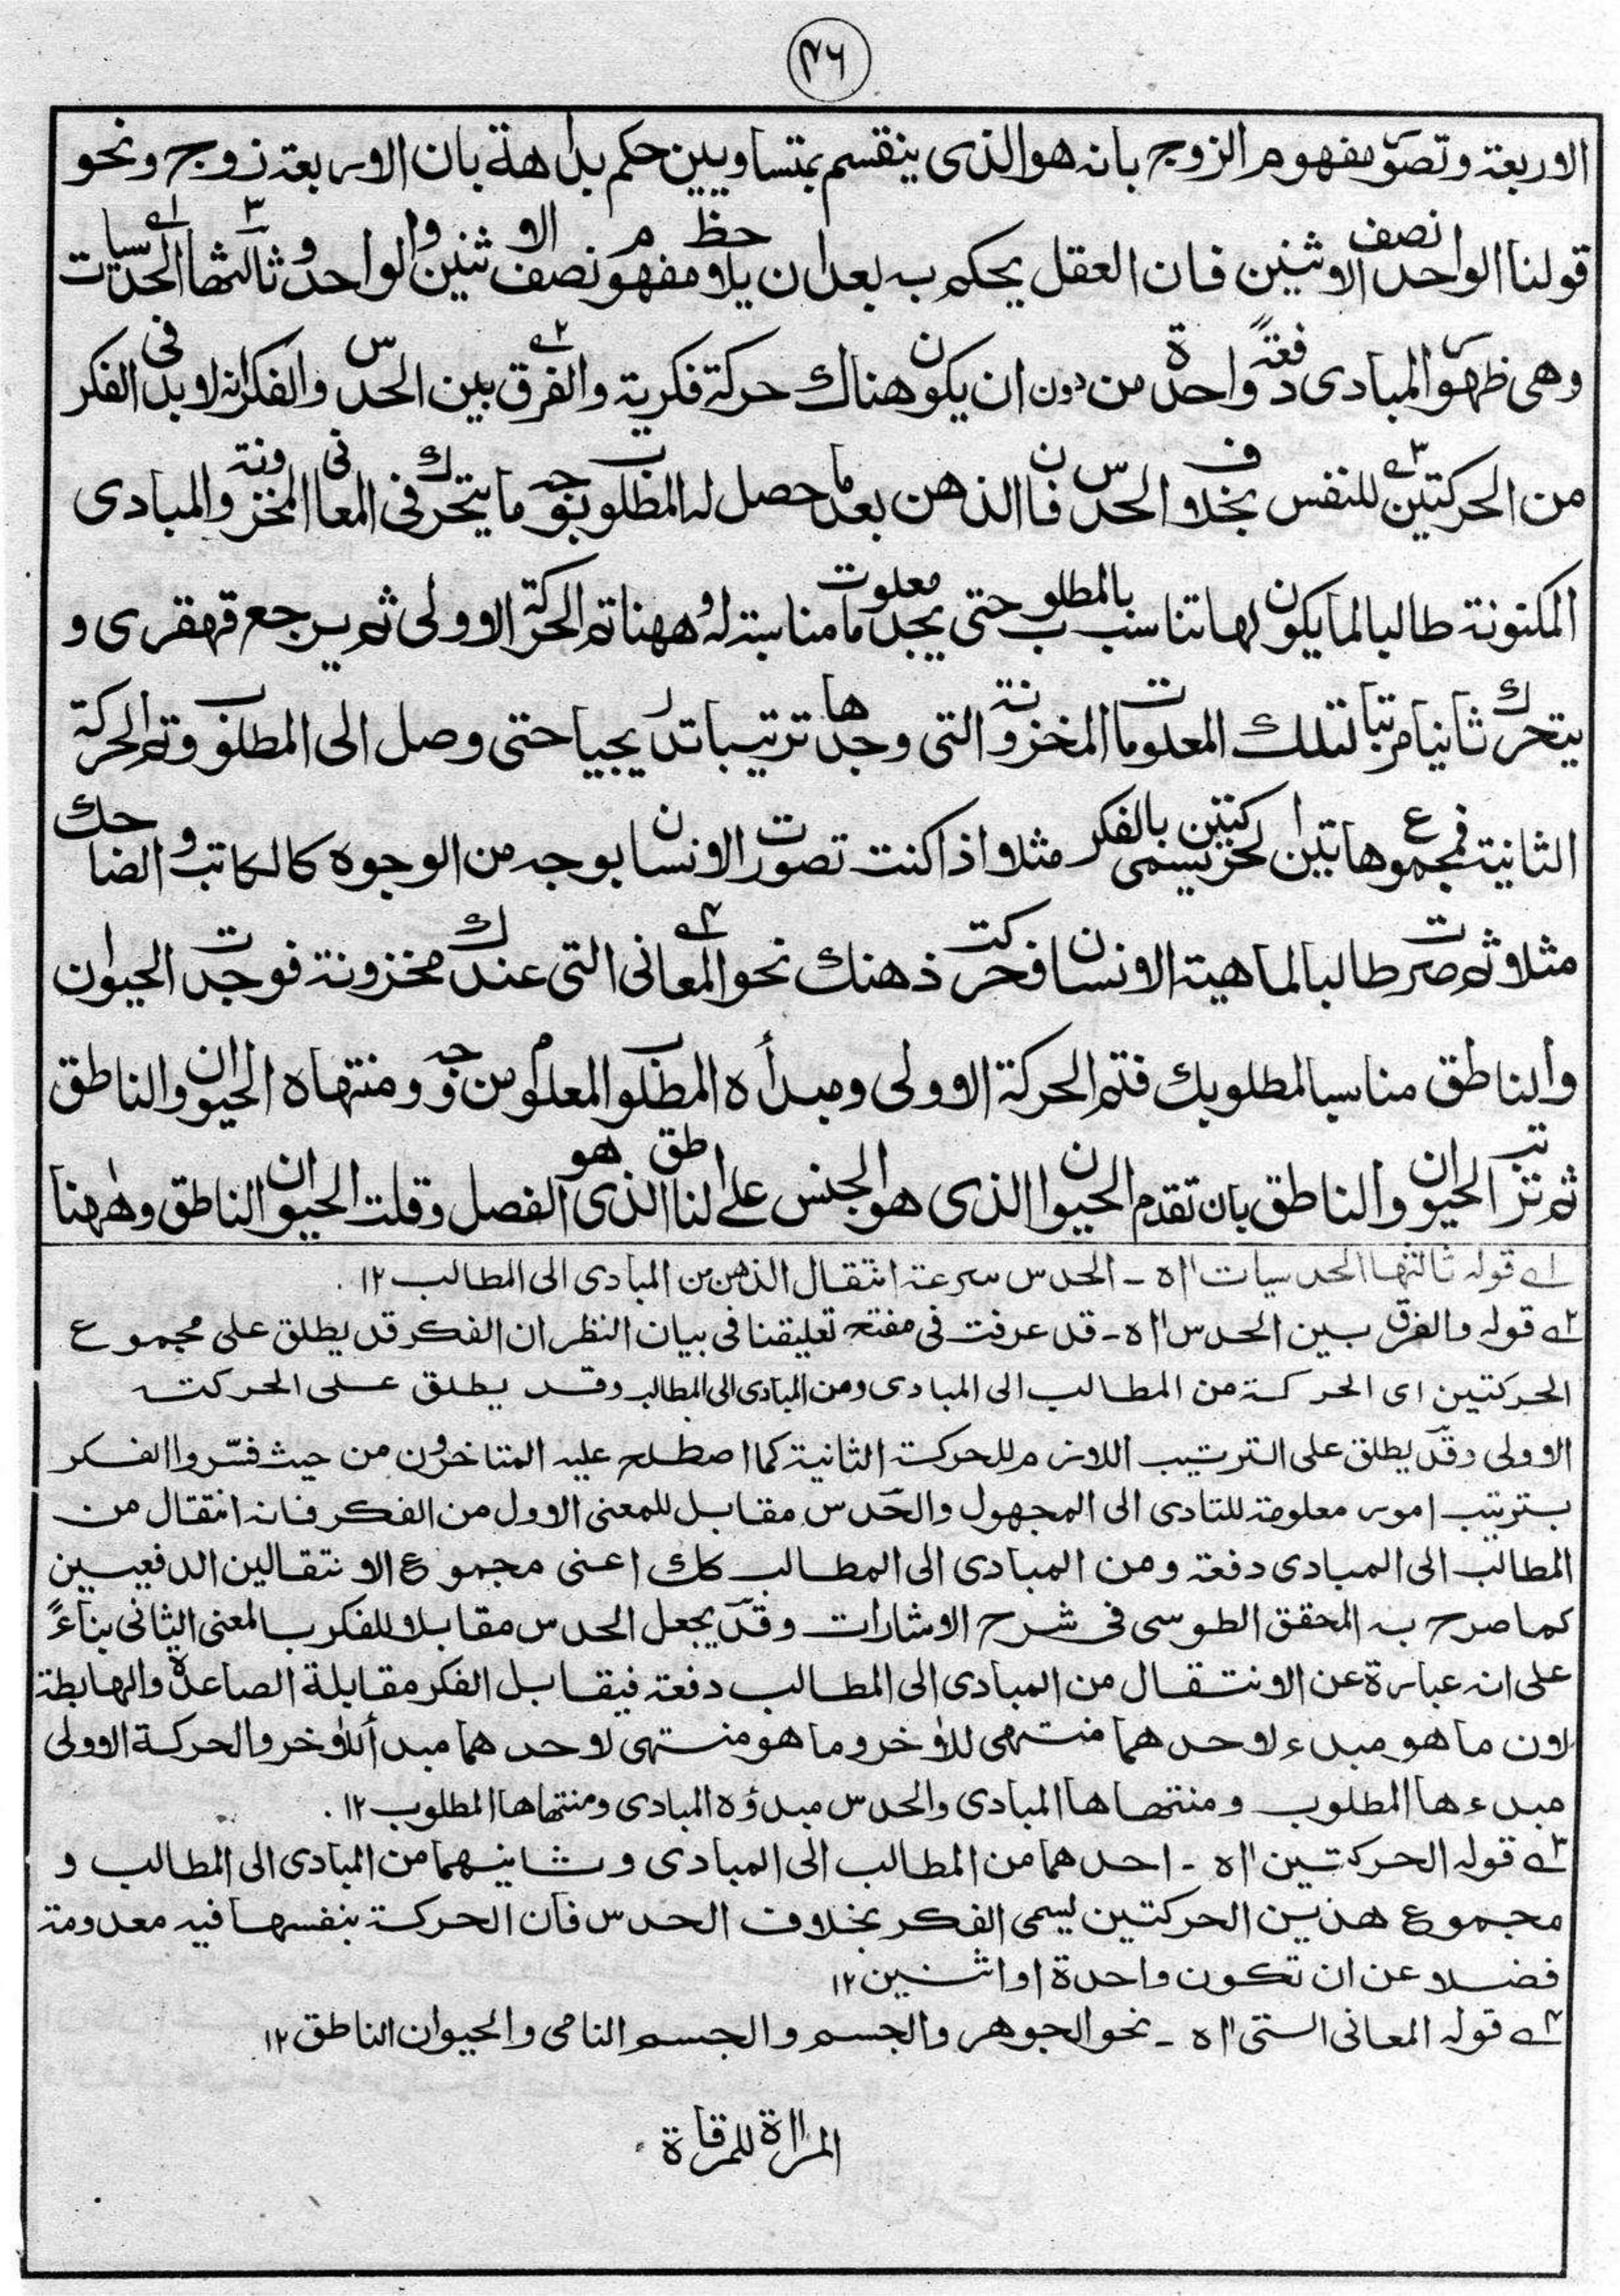 ۴۶
الاربعة وتصور مفهوم الزوج بانه هو الذى ينقسم بمتساويين حكم بداهة بان الاربعة زوج ونحو
قولنا الواحد نصف الاثنين فان العقل يحكم به بعد ان يلاحظ مفهوم نصف الاثنين والواحد وثالثها الحدسيات
وهى ظهور المبادى دفعةً واحدة من دون ان يكون هناك حركة فكرية والفرق بين الحدس والفكر انه لابد فى الفكر
من الحركتين للنفس بخلاف الحدس فان الذهن بعد ما حصل له المطلوب بوجه ما يتحرك فى المعانى المخزونة والمبادى
المكنونة طالبا لما يكون لها تناسب بالمطلوب حتى يجد معلومات مناسبة له وههنا تم الحركة الاولى ثم يرجع قهقرى و
يتحرك ثانيا مرتبا لتلك المعلومات المخزونة التى وجدها ترتيبا تدريجيا حتى وصل الى المطلوب وتم الحركة
الثانية فمجموع هاتين الحركتين يسمى بالفكر مثلا اذا كنت تصورت الانسان بوجه من الوجوه كالكاتب والضاحك
مثلا ثم صرت طالبا لماهية الانسان فحركت ذهنك نحو المعانى التى عندك مخزونة فوجدت الحيوان
والناطق مناسبا لمطلوبك فتم الحركة الاولى ومبدأه المطلوب المعلوم من وجه ومنتهاه الحيوان والناطق
ثم ترتب الحيوان والناطق بان تقدم الحيوان الذى هو الجنس على الناطق الذى هو الفصل وقلت الحيوان الناطق وههنا
۱ قوله ثالثها الحدسيات اه ـ الحدس سرعة انتقال الذهن من المبادى الى المطالب ۱۲.
۲ قوله والفرق بين الحدس اه ـ قد عرفت فى مفتح تعليقنا فى بيان النظر ان الفكر قد يطلق على مجموع
الحركتين اى الحركة من المطالب الى المبادى ومن المبادى الى المطالب وقد يطلق على الحركة
الاولى وقد يطلق على الترتيب اللازم للحركة الثانية كما اصطلح عليه المتاخرون من حيث فسّروا الفكر
بترتيب امور معلومة للتادى الى المجهول والحدس مقابل للمعنى الاول من الفكر فانه انتقال من
المطالب الى المبادى دفعة ومن المبادى الى المطالب كك اعنى مجموع الانتقالين الدفعيين
كما صرح به المحقق الطوسى فى شرح الاشارات وقد يجعل الحدس مقابلا للفكر بالمعنى الثانى بناءً
على انه عبارة عن الانتقال من المبادى الى المطالب دفعة فيقابل الفكر مقابلة الصاعدة والهابطة
لان ما هو مبدء لاحدهما منتهى للاٰخر وما هو منتهى لاحدهما مبدأ للاٰخر والحركة الاولى
مبدءها المطلوب ومنتهاها المبادى والحدس مبدؤه المبادى ومنتهاها المطلوب ۱۲.
۳ قوله الحركتين اه ـ احدهما من المطالب الى المبادى وثانيهما من المبادى الى المطالب و
مجموع هذين الحركتين يسمى الفكر بخلاف الحدس فان الحركة بنفسها فيه معدومة
فضلا عن ان تكون واحدة او اثنين ۱۲
۴ قوله المعانى التى اه ـ نحو الجوهر والجسم والجسم النامى والحيوان الناطق ۱۲.
المراٰة للمرقاة